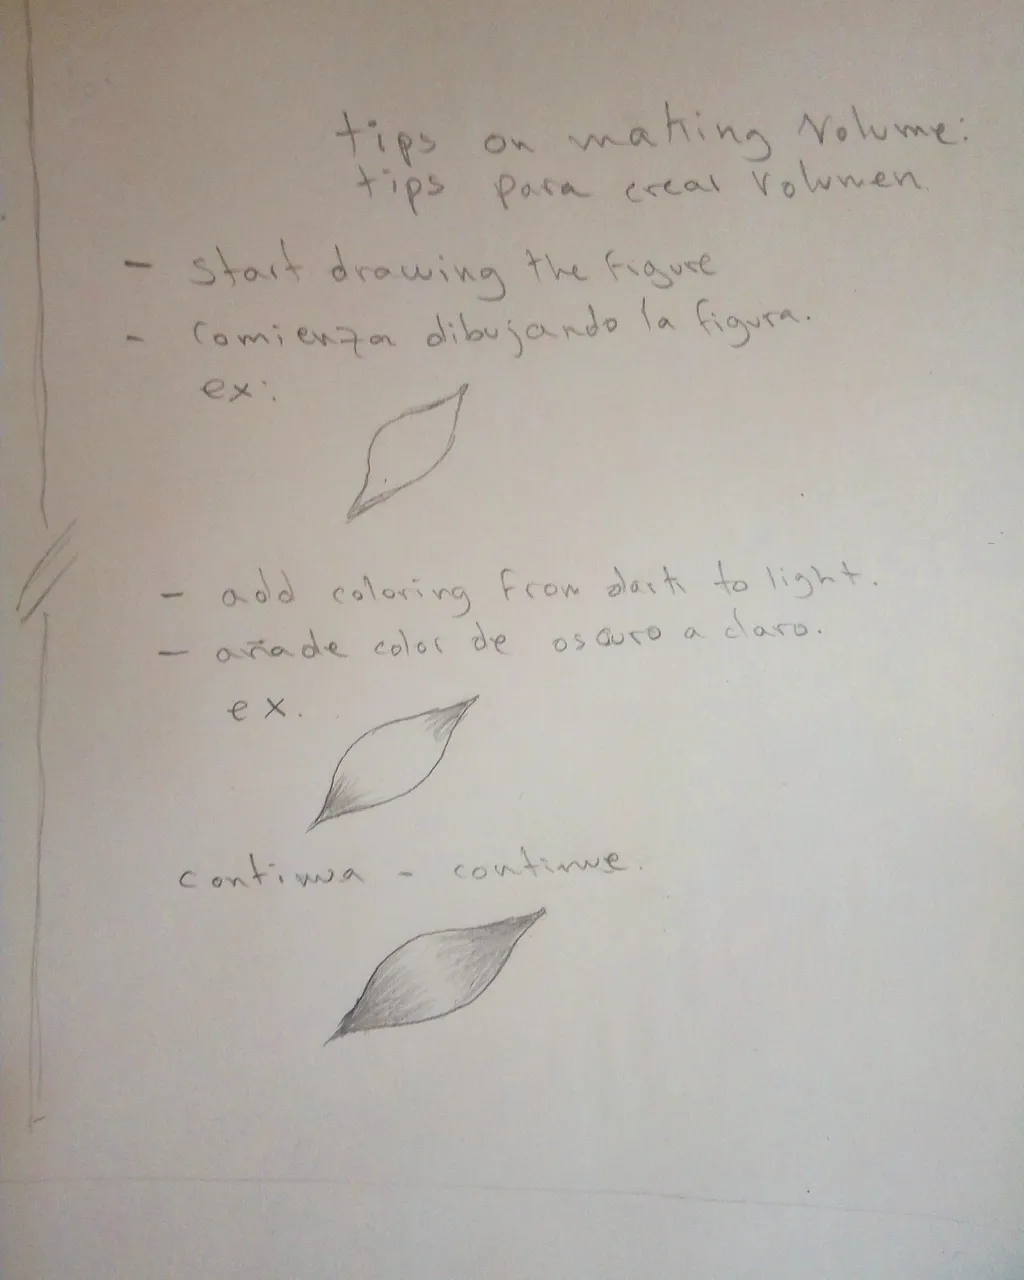 tips on making volume:
tips para crear volumen
- start drawing the figure
- comienza dibujando la figura.
ex:
- add coloring from dark to light.
- añade color de oscuro a claro.
ex.
continua - continue.